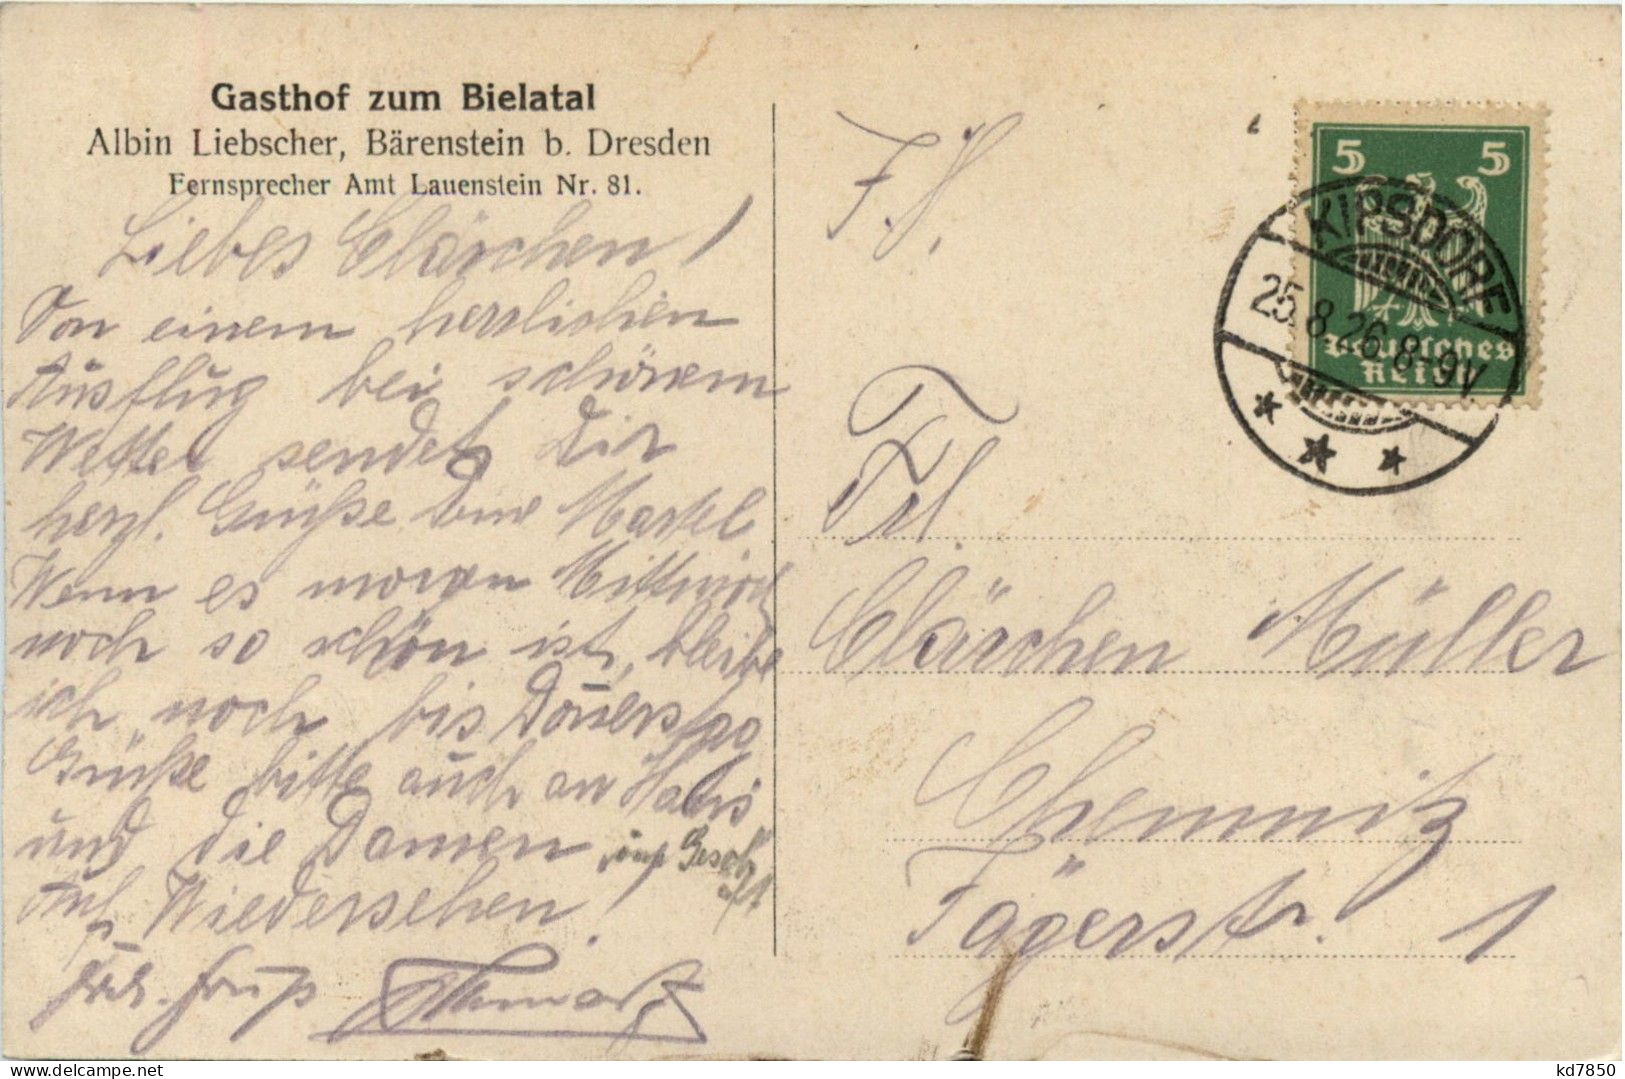 Gasthof zum Bielatal
Albin Liebscher, Bärenstein b. Dresden
Fernsprecher Amt Lauenstein Nr. 81.
Liebes Clärchen!
Von einem herrlichen
Ausflug bei schönem
Wetter sendet Dir
herzl. Grüße Deine Martel.
Wenn es morgen Mittwoch
noch so schön ist, bleibe
ich noch bis Donnerstag
Grüße bitte auch an Hans
und die Damen
Auf Wiedersehen!
frdl. Gruß
F. H.
Frl.
Clärchen Müller
Chemnitz
Jägerstr. 1
5 5
Deutsches
Reich
KIPSDORF
25.8.26.8-9V.
kd7850